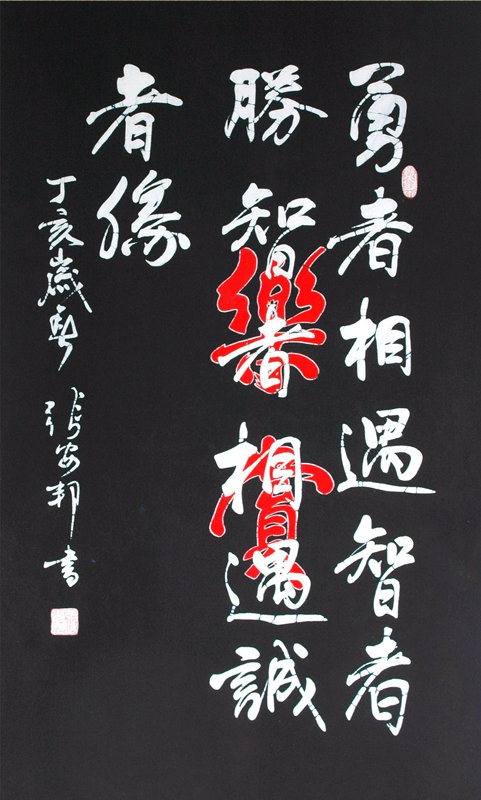 勇者相遇智者
勝智者相遇誠
者
丁亥歲 張安邦書
樂